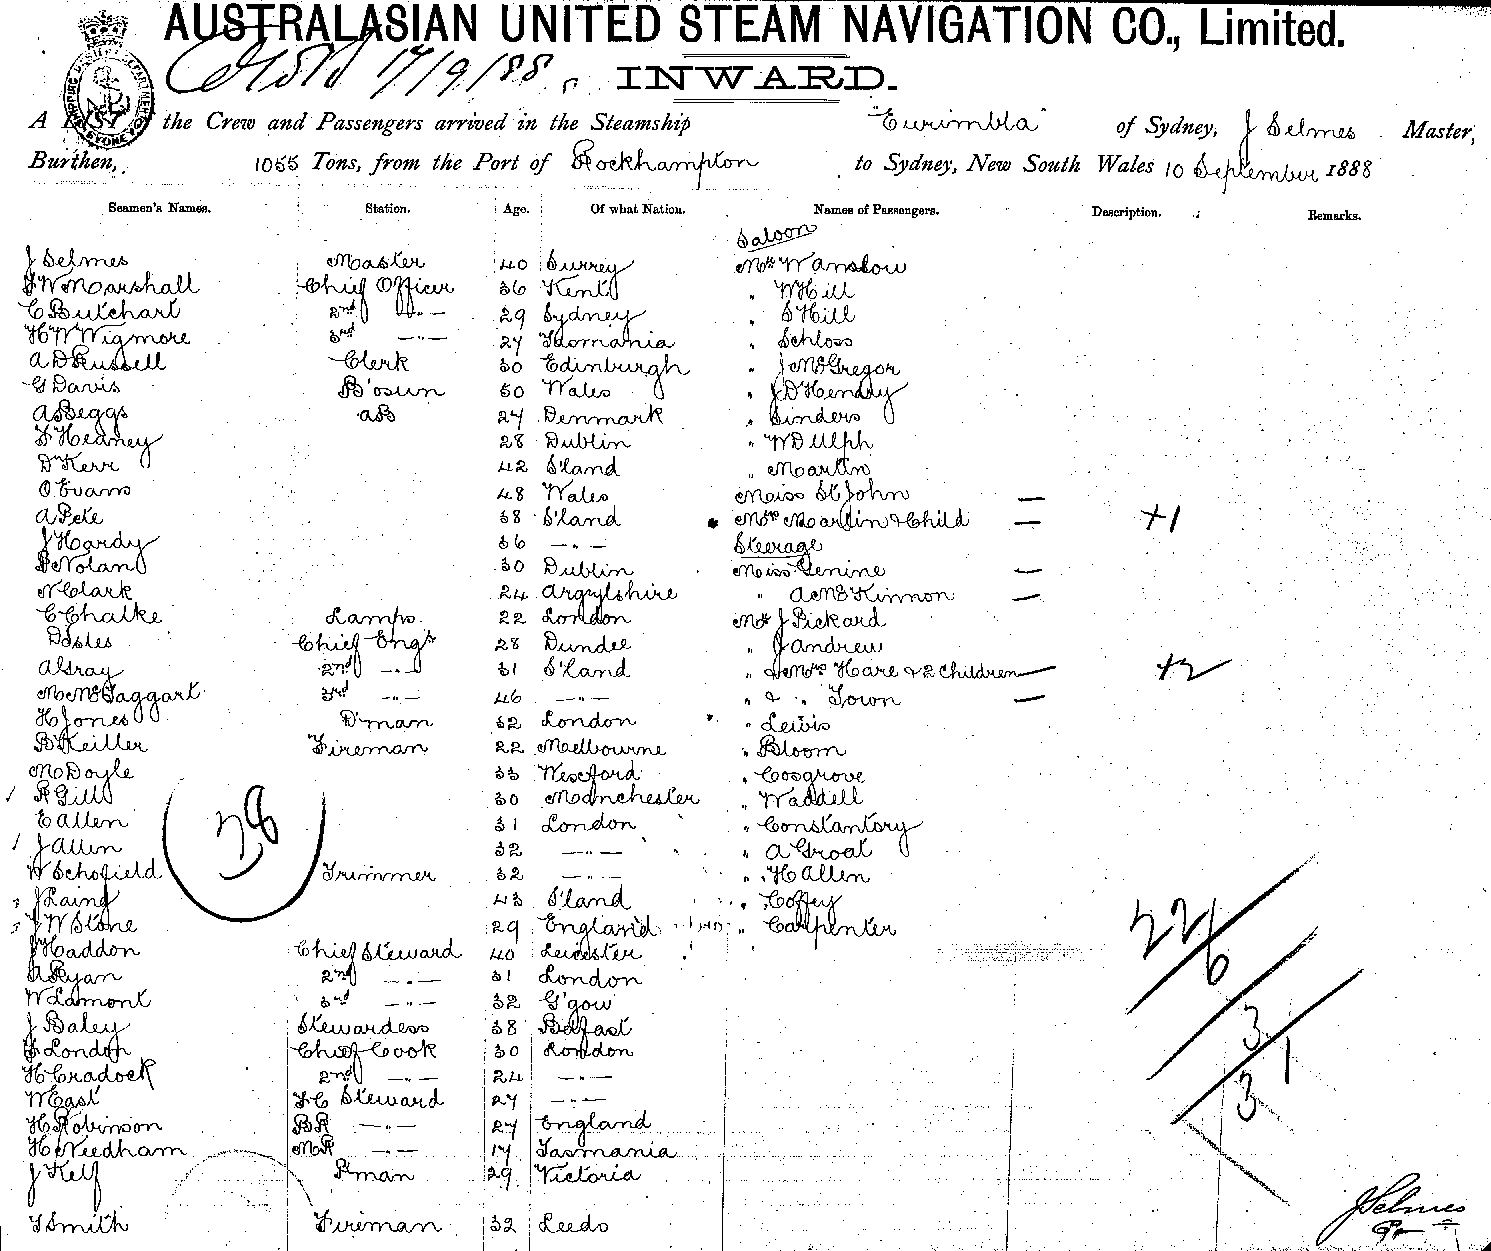 AUSTRALASIAN UNITED STEAM NAVIGATION CO., Limited.
17/9/88. INWARD.
A LIST the Crew and Passengers arrived in the Steamship "Eurimbla" of Sydney, J Selmes Master,
Burthen, 1055 Tons, from the Port of Rockhampton to Sydney, New South Wales 10 September 1888
Seamen's Names. Station. Age. Of what Nation. Names of Passengers. Description. Remarks.
Saloon
J Selmes Master 40 Surrey Mr Wanslow
Marshall Chief Officer 36 Kent " W Hill
C Butchart 2nd " 29 Sydney " S Hill
H W Wigmore 3rd -"- 27 Tasmania " Schloss
A D Russell Clerk 30 Edinburgh " J McGregor
G Davis B'osun 50 Wales " J D Hendry
A Beggs AB 27 Denmark " Sinders
F Heaney 28 Dublin " W D Ulph
D Kerr 42 S'land " Martin
O Evans 48 Wales Miss St John —
A Pete 38 S'land Mrs Martin & Child — +1
J Hardy 36 -"- Steerage
Nolan 30 Dublin Miss Genine —
N Clark 24 Argylshire " A McKinnon —
C Chalke Lamps. 22 London Mr J Pickard
D Isles Chief Engr 28 Dundee " J Andrew
A Gray 2nd -"- 31 S'land " & Mrs Hare & 2 Children — +2
M McTaggart 3rd -"- 46 -"- " & " Town —
H Jones D'man 32 London " Lewis
B Keiller Fireman 22 Melbourne " Bloom
M Doyle 33 Wexford " Cosgrove
R Gill 30 Manchester " Waddell
E Allen 38 31 London " Constantory
J Allen 32 -"- " A Groat
W Schofield Trimmer 32 -"- " H Allen
J Laing 43 S'land " Coffey
J W Stone 29 England " Carpenter
J Haddon Chief Steward 40 Leicester
A Ryan 2nd -"- 31 London
W Lamont 3rd -"- 32 G'gow
J Baley Stewardess 38 Belfast
London Chief Cook 30 London
H Cradock 2nd -"- 24 -"-
W East FC Steward 27 -"-
H Robinson BR -"- 27 England
H Needham MR -"- 17 Tasmania
J Kelf P'man 29 Victoria
T Smith Fireman 32 Leeds
22
6
3
31
J Selmes